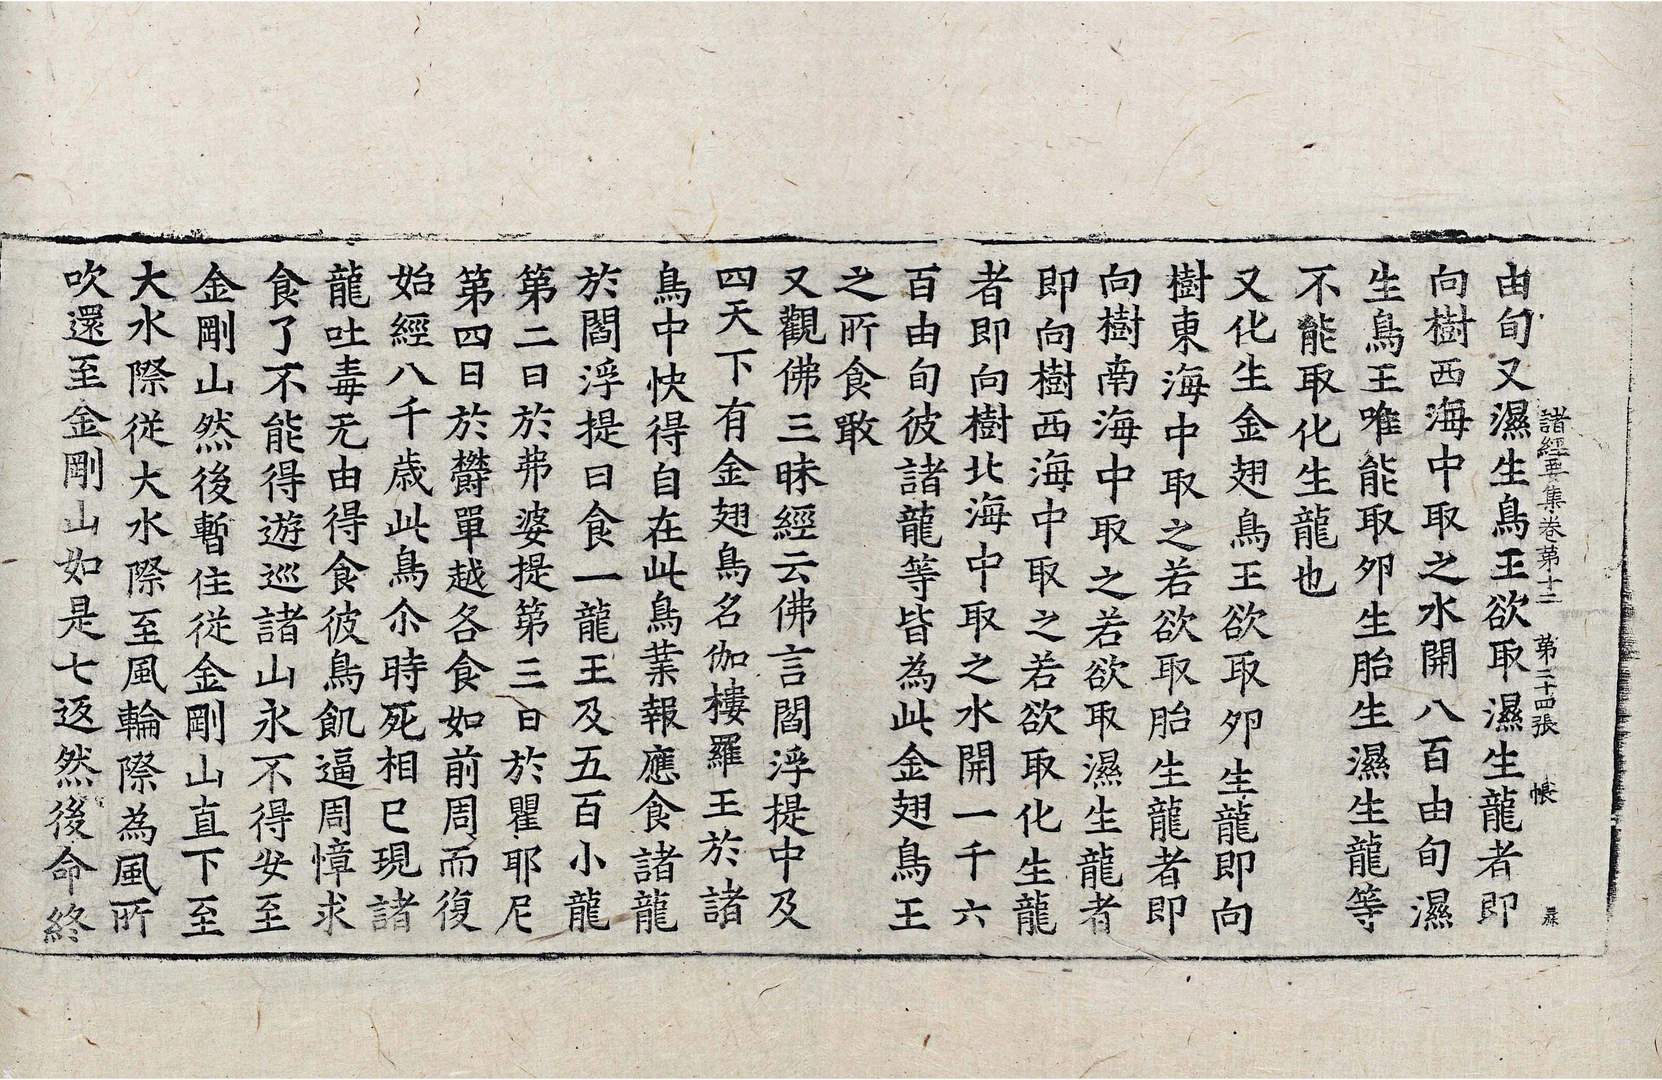 諸經要集卷第十二 第三十四張 帳
由旬又濕生鳥王欲取濕生龍者即
向樹西海中取之水開八百由旬濕
生鳥王唯能取卵生胎生濕生龍等
不能取化生龍也
又化生金翅鳥王欲取卵生龍即向
樹東海中取之若欲取胎生龍者即
向樹南海中取之若欲取濕生龍者
即向樹西海中取之若欲取化生龍
者即向樹北海中取之水開一千六
百由旬彼諸龍等皆為此金翅鳥王
之所食敢
又觀佛三昧經云佛言閻浮提中及
四天下有金翅鳥名伽樓羅王於諸
鳥中快得自在此鳥業報應食諸龍
於閻浮提日食一龍王及五百小龍
第二日於弗婆提第三日於瞿耶尼
第四日於欝單越各食如前周而復
始經八千歲此鳥尒時死相已現諸
龍吐毒无由得食彼鳥飢逼周慞求
食了不能得遊巡諸山永不得安至
金剛山然後暫住從金剛山直下至
大水際從大水際至風輪際為風所
吹還至金剛山如是七返然後命終